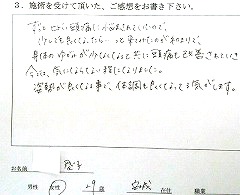 3. 施術を受けて頂いた、ご感想をお書き下さい。
ずっとひどい頭痛に悩まされていたので、
少しでも良くなったら…と
身体のゆがみが少なくなると共に頭痛も改善されていき
今では、気にならない程になりました。
姿勢が良くなる事が、体調も良くなってる気がします。
お名前
男性 女性 29歳 在住